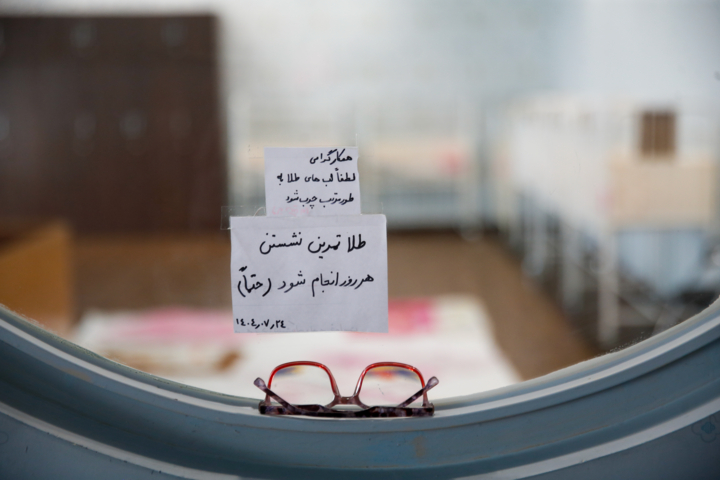 همکار گرامی
لطفاً لب های طلا به
طور مرتب چرب شود
طلا تمرین نشستن
هر روز انجام شود (حتماً)
۱۴۰۴٫۰۷٫۲۴